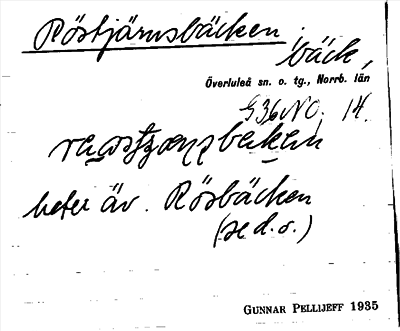 Röstjärnsbäcken,
bäck,
Överluleå sn. o. tg., Norrb. län
G36NO, 14.
heter äv. Rösbäcken
(se d. o.)
GUNNAR PELLIJEFF 1935